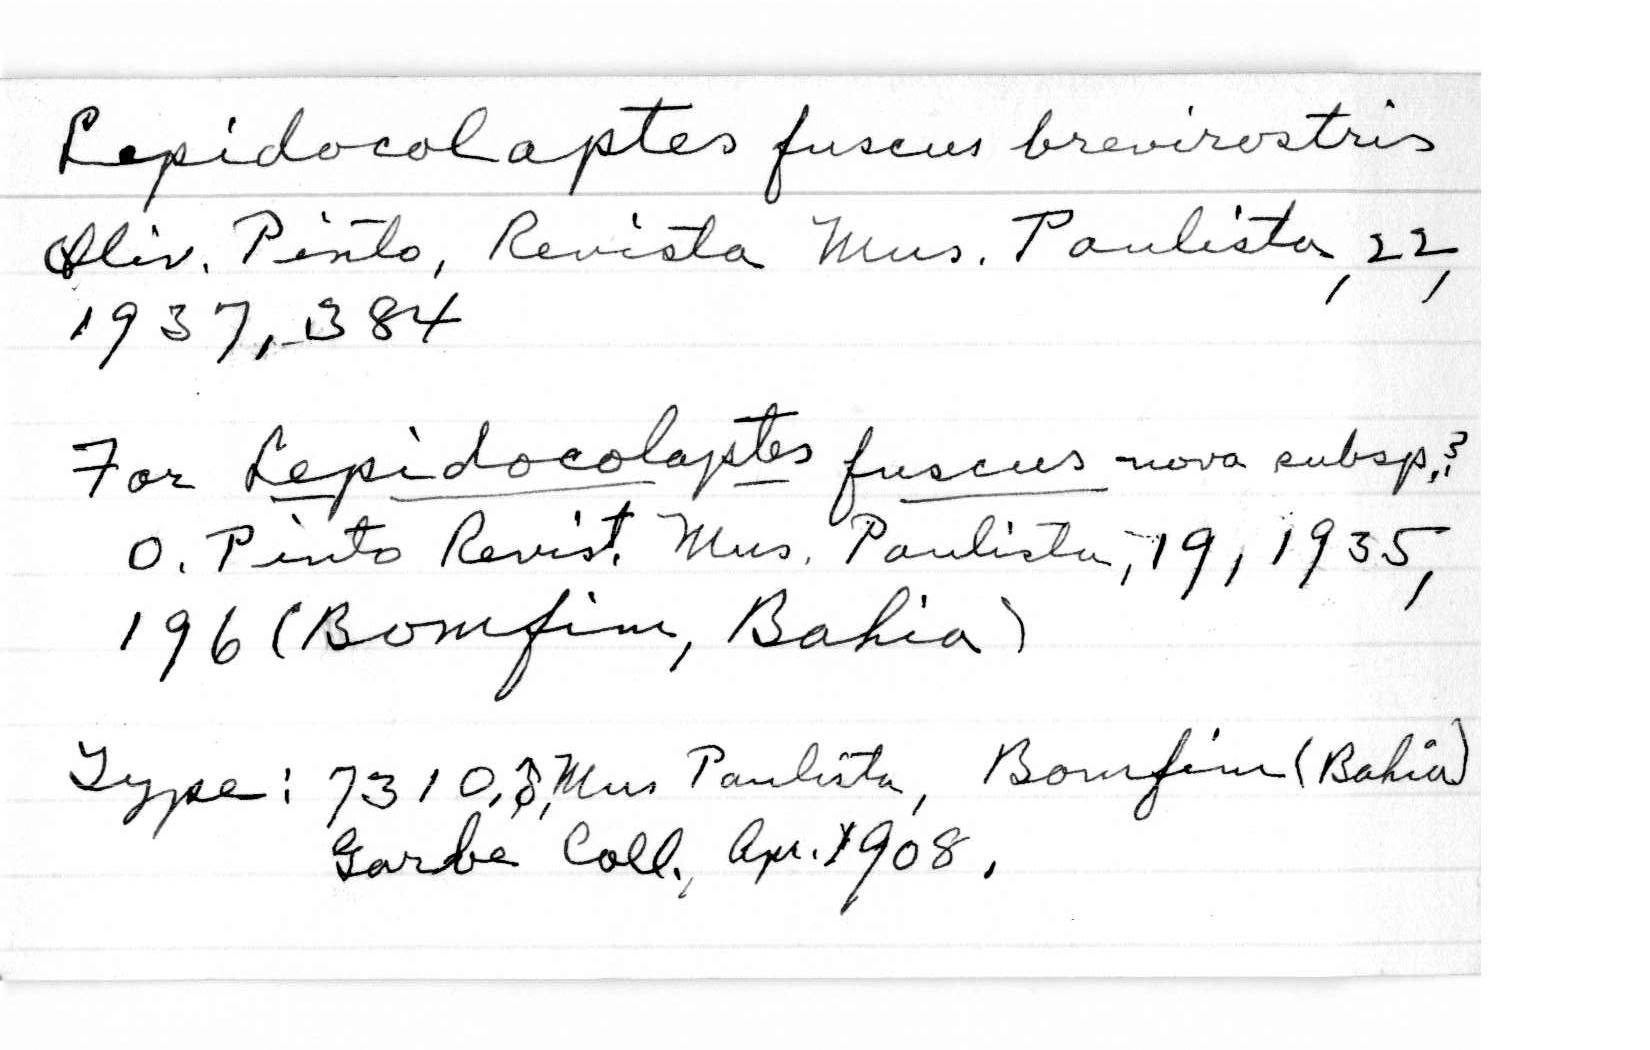 Lepidocolaptes fuscus brevirostris
Oliv. Pinto, Revista Mus. Paulista, 22,
1937, 384
For Lepidocolaptes fuscus nova subsp.?
O. Pinto Revist. Mus. Paulista, 19, 1935,
196 (Bomfim, Bahia)
Type: 7310, ♂, Mus Paulista, Bomfim (Bahia)
Garbe Coll., Apr. 1908.